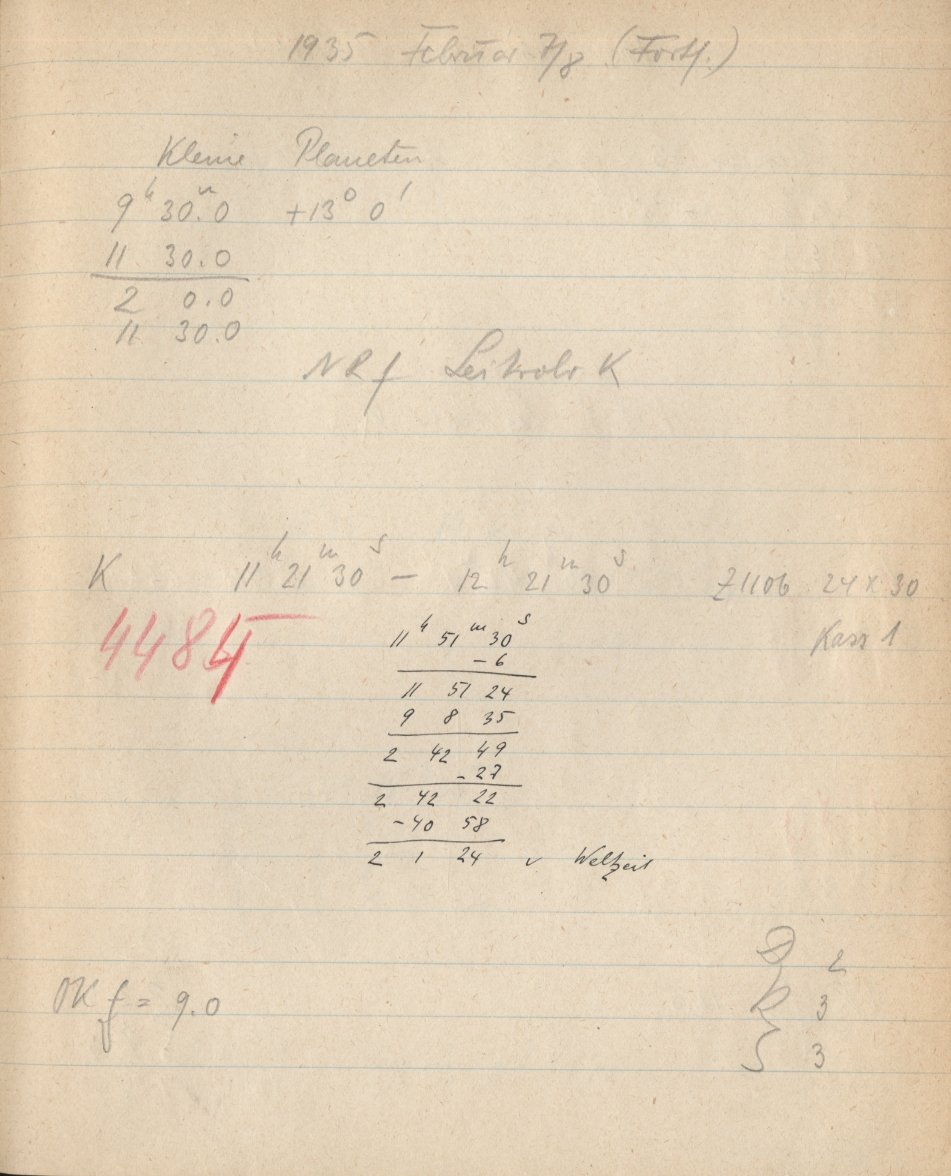 1935 Februar 7/8 (Forts.)
Kleine Planeten
9ʰ 30ᵐ.0 +13° 0'
11 30.0
2 0.0
11 30.0
NRf Leitrohr K
K 11ʰ 21ᵐ 30ˢ — 12ʰ 21ᵐ 30ˢ Z1106 24 x 30
4485 Kass 1
11ʰ 51ᵐ 30ˢ
-6
11 51 24
9 8 35
2 42 49
-27
2 42 22
-40 58
2 1 24 v Weltzeit
2
OK f = 9.0 3
3